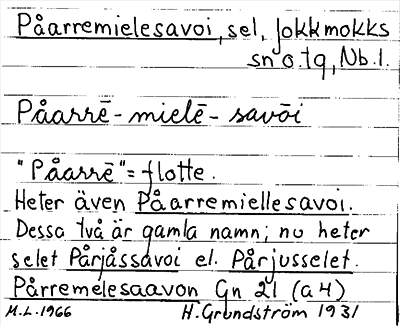 Påarremielesavoi, sel, Jokkmokks
sn o tg, Nb.l.
Påarrē-mielē-savōi
"Påarrē" = flotte.
Heter även Påarremiellesavoi.
Dessa två är gamla namn; nu heter
selet Pårjåssavoi el. Pårjusselet.
Pårremelesaavon Gn 21 (a4)
M.L.1966 H. Grundström 1931